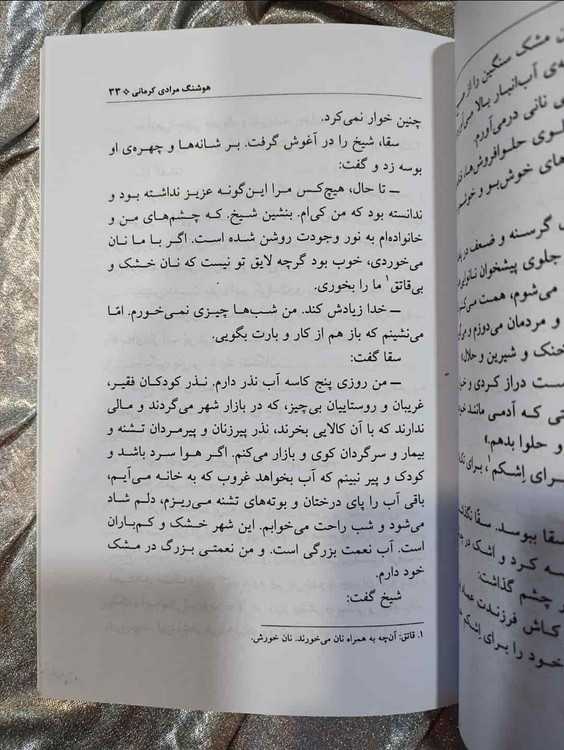 هوشنگ مرادی کرمانی ❖ ۳۳
چنین خوار نمی‌کرد.
سقا، شیخ را در آغوش گرفت. بر شانه‌ها و چهره‌ی او
بوسه زد و گفت:
ــ تا حال، هیچ‌کس مرا این‌گونه عزیز نداشته بود و
ندانسته بود که من کی‌ام. بنشین شیخ. که چشم‌های من و
خانواده‌ام به نور وجودت روشن شده است. اگر با ما نان
می‌خوردی، خوب بود گرچه لایق تو نیست که نان خشک و
بی‌قاتق۱ ما را بخوری.
ــ خدا زیادش کند. من شب‌ها چیزی نمی‌خورم. امّا
می‌نشینم که باز هم از کار و بارت بگویی.
سقا گفت:
ــ من روزی پنج کاسه آب نذر دارم. نذر کودکان فقیر،
غریبان و روستاییان بی‌چیز، که در بازار شهر می‌گردند و مالی
ندارند که با آن کالایی بخرند، نذر پیرزنان و پیرمردان تشنه و
بیمار و سرگردان کوی و بازار می‌کنم. اگر هوا سرد باشد و
کودک و پیر نبینم که آب بخواهد غروب که به خانه می‌آیم،
باقی آب را پای درختان و بوته‌های تشنه می‌ریزم، دلم شاد
می‌شود و شب راحت می‌خوابم. این شهر خشک و کم‌باران
است. آب نعمت بزرگی است. و من نعمتی بزرگ در مشک
خود دارم.
شیخ گفت:
۱. قاتق: آن‌چه به همراه نان می‌خورند. نان خورش.
مشک سنگین را از
آب‌انبار بالا
نانی درمی‌آورم.
جلوی حلوافروش‌ها،
های خوش‌بو و
گرسنه و ضعف در
جلوی پیشخوان
می‌شوم، همت
و مردمان می‌دوزم و
خنک و شیرین و حلال
دست دراز کردی و
که آدمی مانند
و حلوا بدهم.»
برای اِشکم۱، برای
سقا ببوسد. سقا
کرد و اشک در
چشم گذاشت:
کاش فرزندت
خود را برای اِشکم